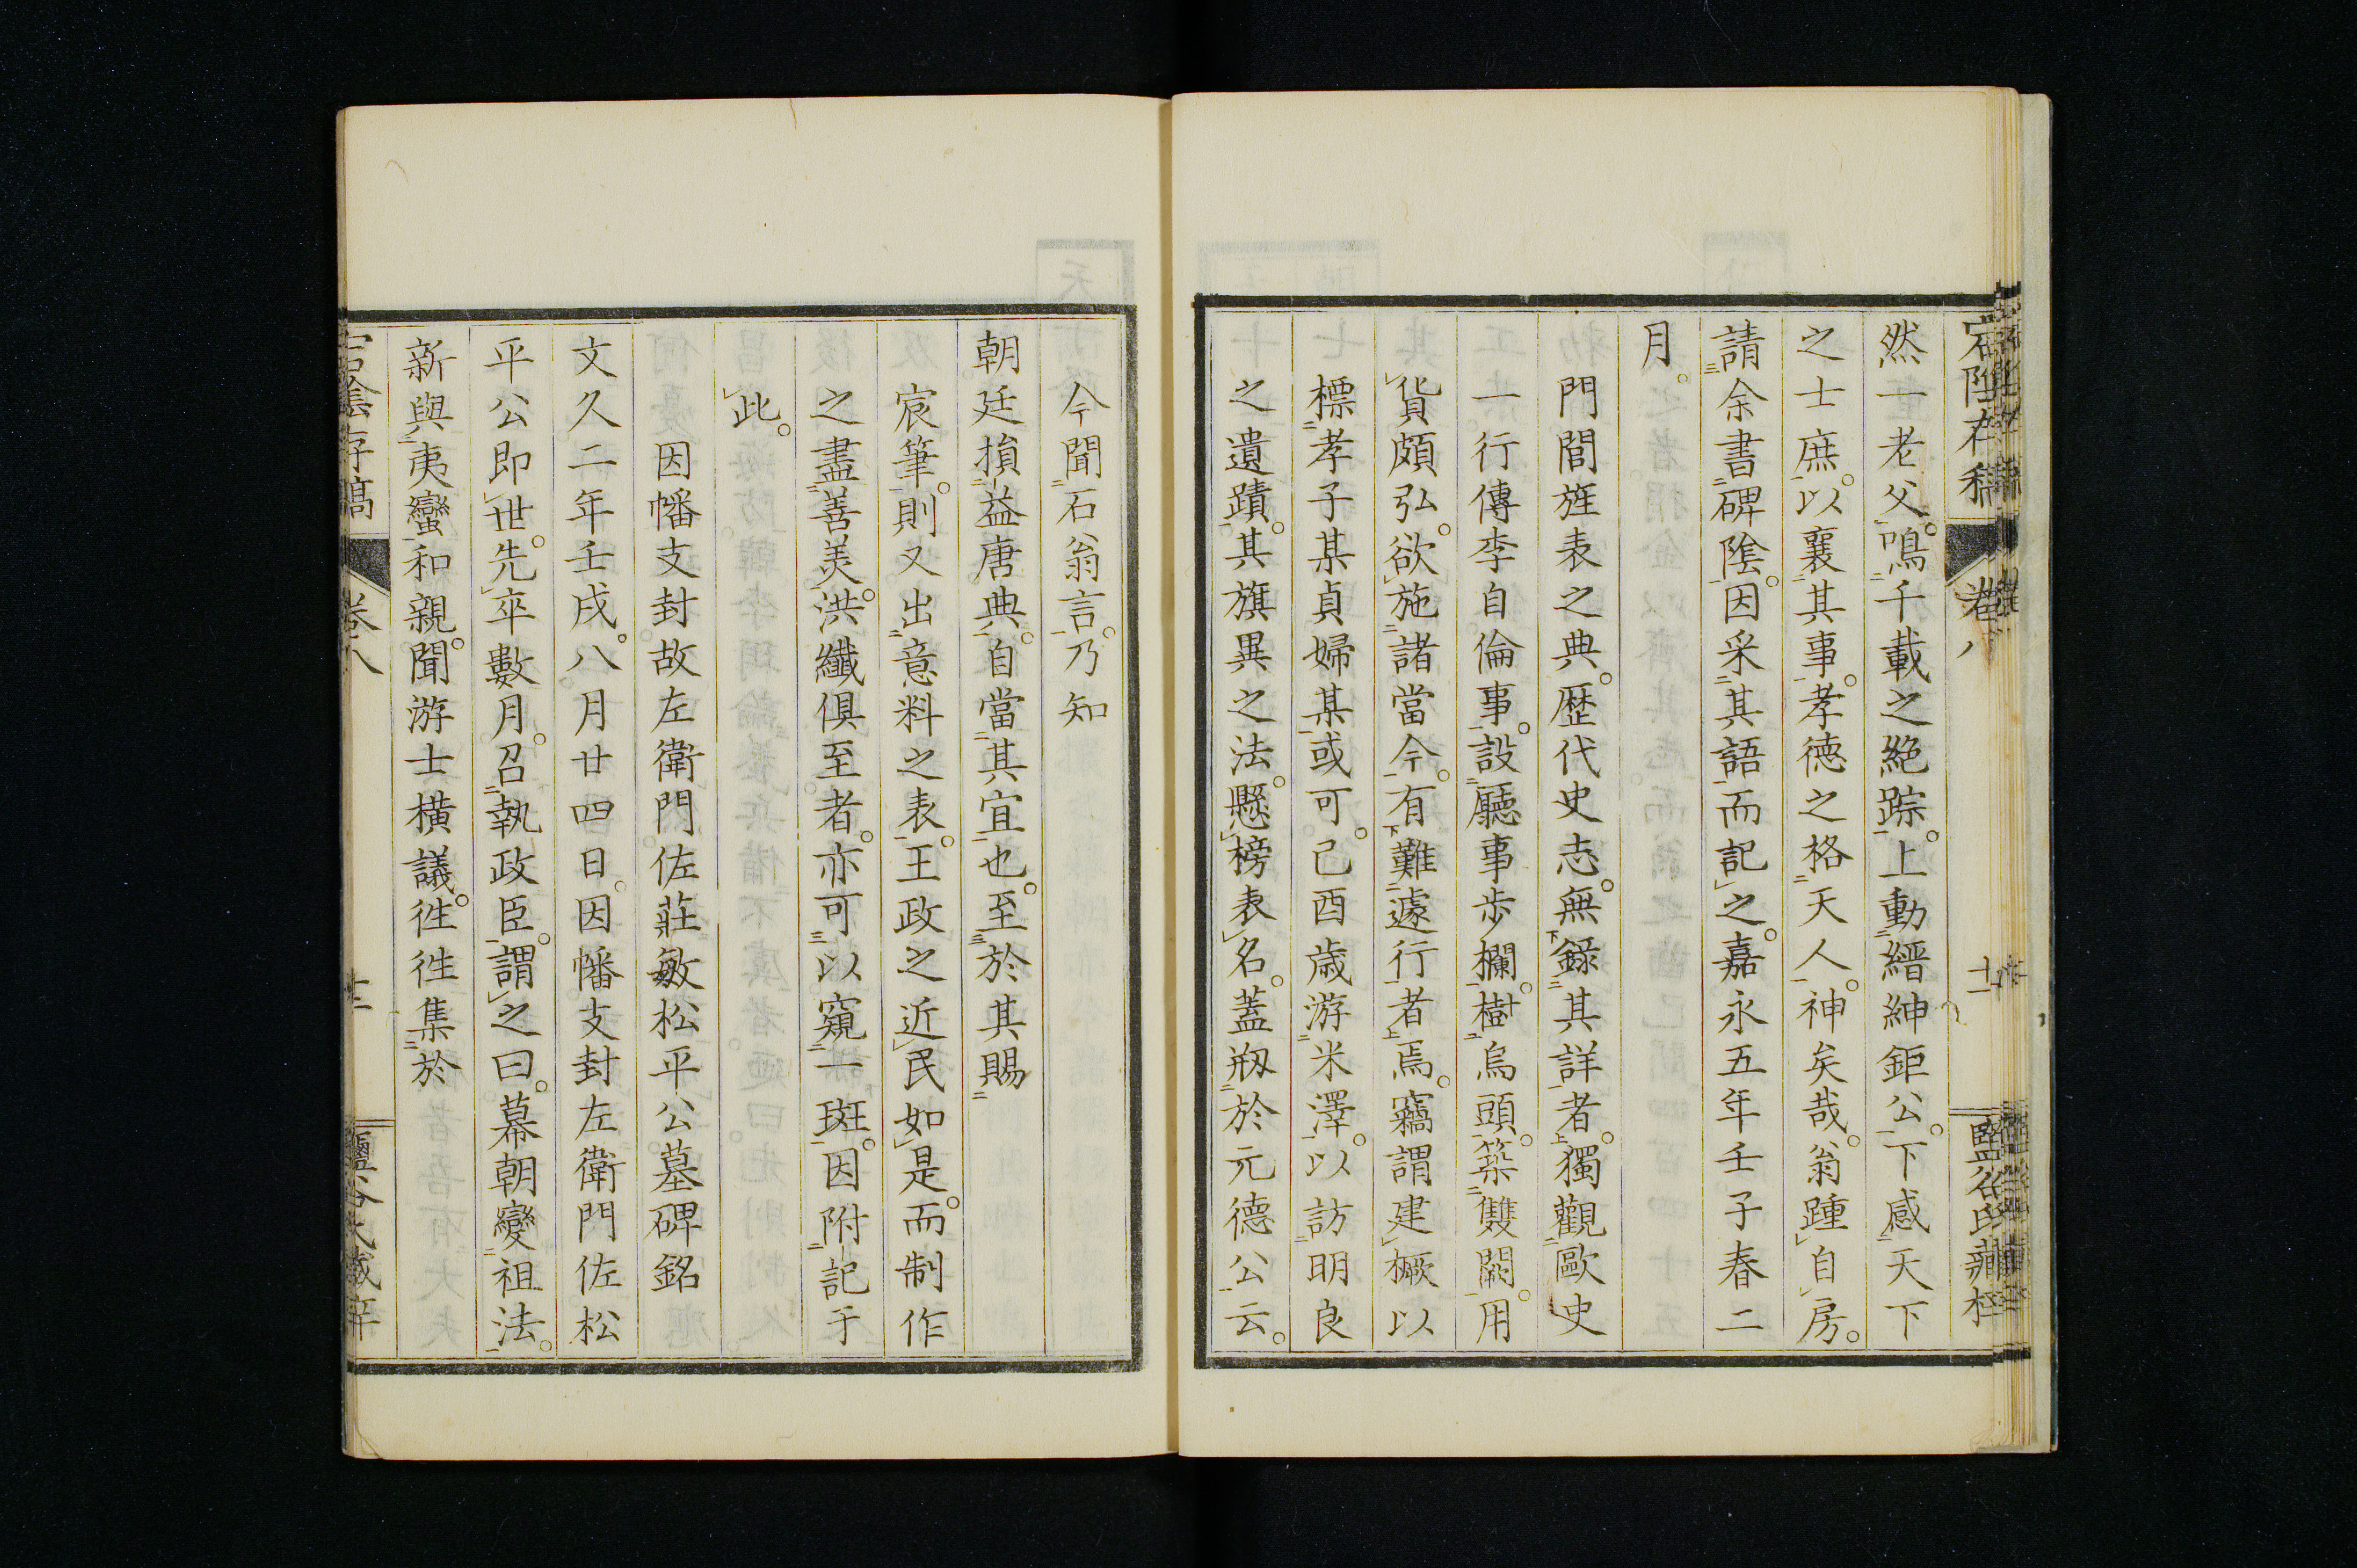 宕陰存稿 卷八 十一
然一老父。鳴千載之絶踪。上動縉紳鉅公。下感天下
之士庶。以襄其事。孝德之格天人。神矣哉。翁踵自房。
請余書碑陰。因采其語而記之。嘉永五年壬子春二
月。
門閭旌表之典。歷代史志。無錄其詳者。獨觀歐史
一行傳李自倫事。設廳事步欄。樹烏頭。築雙闕。用
貨頗弘。欲施諸當今。有難遽行者焉。竊謂建橛以
標孝子某貞婦某。或可。己酉歲游米澤。以訪明良
之遺蹟。其旗異之法。懸榜表名。蓋刱於元德公云。
今聞石翁言。乃知
朝廷損益唐典。自當其宜也。至於其賜
宸筆。則又出意料之表。王政之近民如是。而制作
之盡善美。洪纖俱至者。亦可以窺一斑。因附記于
此。
因幡支封故左衛門佐莊敏松平公墓碑銘
文久二年壬戌。八月廿四日。因幡支封左衛門佐松
平公即世。先卒數月。召執政臣。謂之曰。幕朝變祖法。
新與夷蠻和親。聞游士橫議。徃徃集於
宕陰存稿 卷八